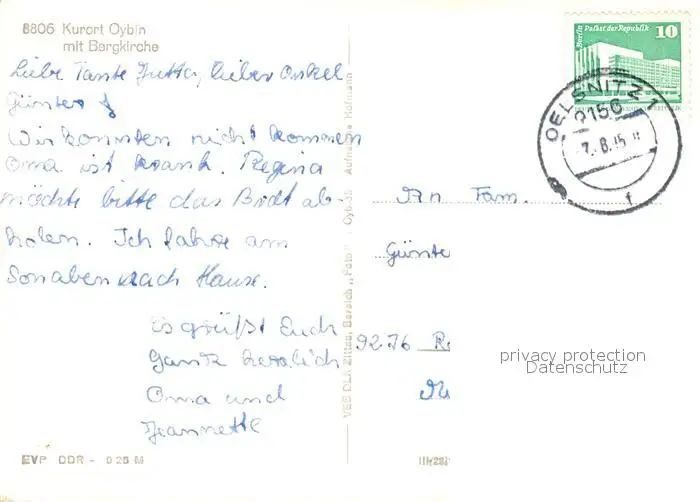 8806 Kurort Oybin
mit Bergkirche
Liebe Tante Jutta, lieber Onkel
Günter!
Wir konnten nicht kommen
Oma ist krank. Regina
möchte bitte das Brot ab-
holen. Ich fahre am
Sonabend nach Hause.
Es grüßt Euch
Ganz herzlich
Oma und
Jeannette
EVP DDR - 0 25 M
VEB DLK Zittau, Bereich „Foto" Oybin Aufnahme: Hofmann
Berlin Palast der Republik
10
OELSNITZ 1
9156
-7.-8.85-11
f
An Fam.
Günte
9276 R
privacy protection
Datenschutz